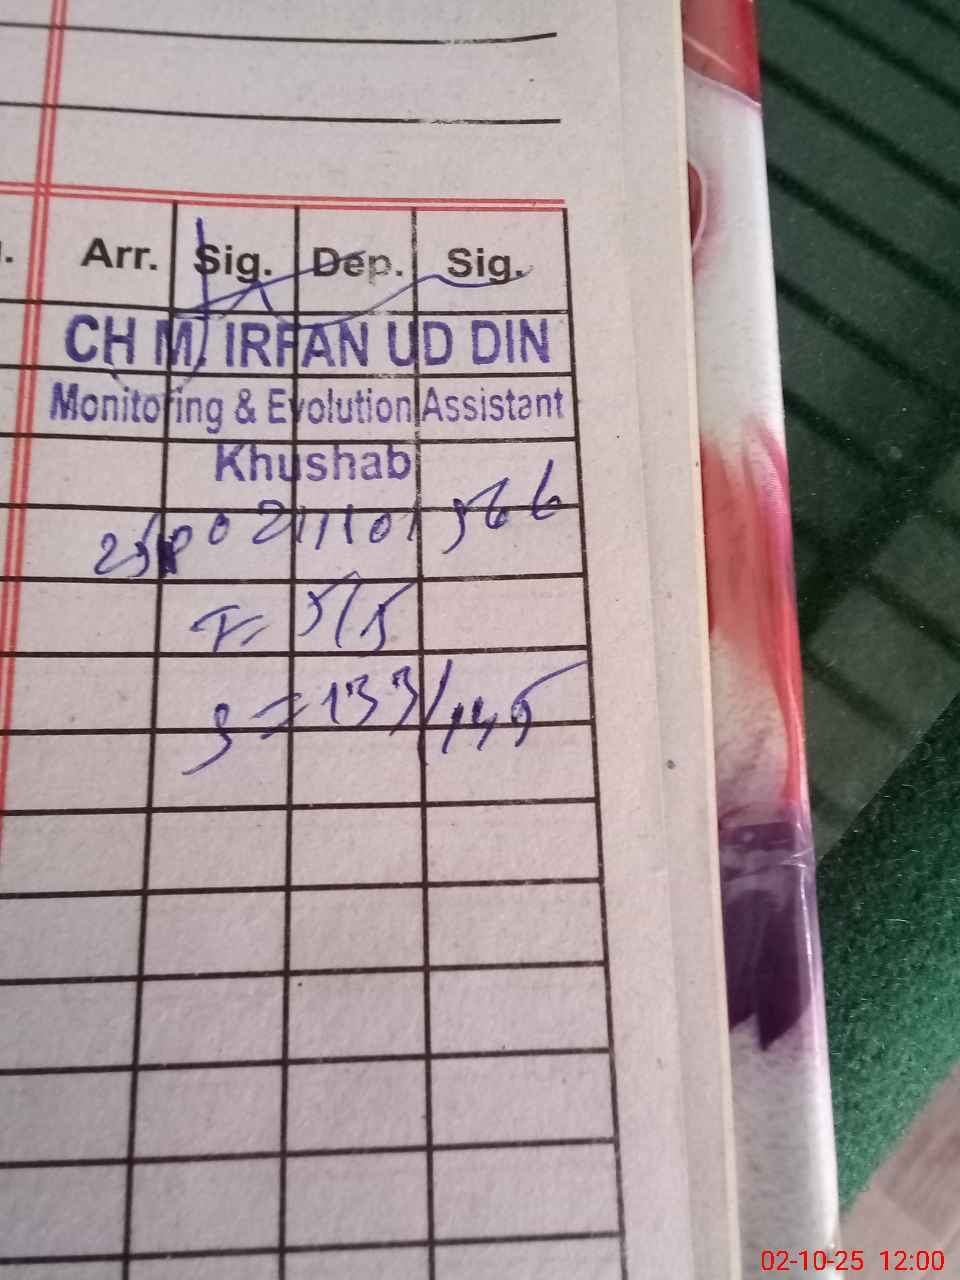 Arr. Sig. Dep. Sig.
CH M. IRFAN UD DIN
Monitoring & Evolution Assistant
Khushab
T= 5/5
S = 133/145
02-10-25 12:00